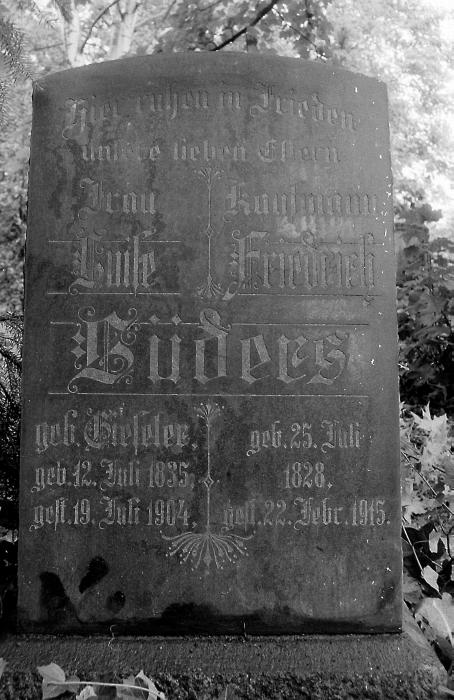 Hier ruhen in Frieden
unsere lieben Eltern
Frau Kaufmann
Luise Friedrich
Lüders
geb. Gieseler, geb. 25. Juli
geb. 12. Juli 1835, 1828,
gest. 19. Juli 1904, gest. 22. Febr. 1915.